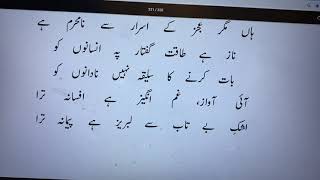 331 / 350
ہاں مگر عجز کے اسرار سے نامحرم ہے
ناز ہے طاقت گفتار پہ انسانوں کو
بات کرنے کا سلیقہ نہیں نادانوں کو
آئی آواز، غم انگیز ہے افسانہ ترا
اشک بے تاب سے لبریز ہے پیمانہ ترا